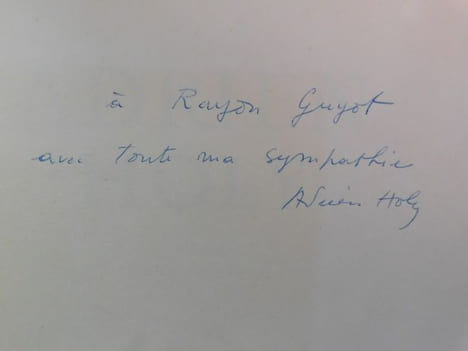 à Rayon Guyot
avec toute ma sympathie
Adrien Holy